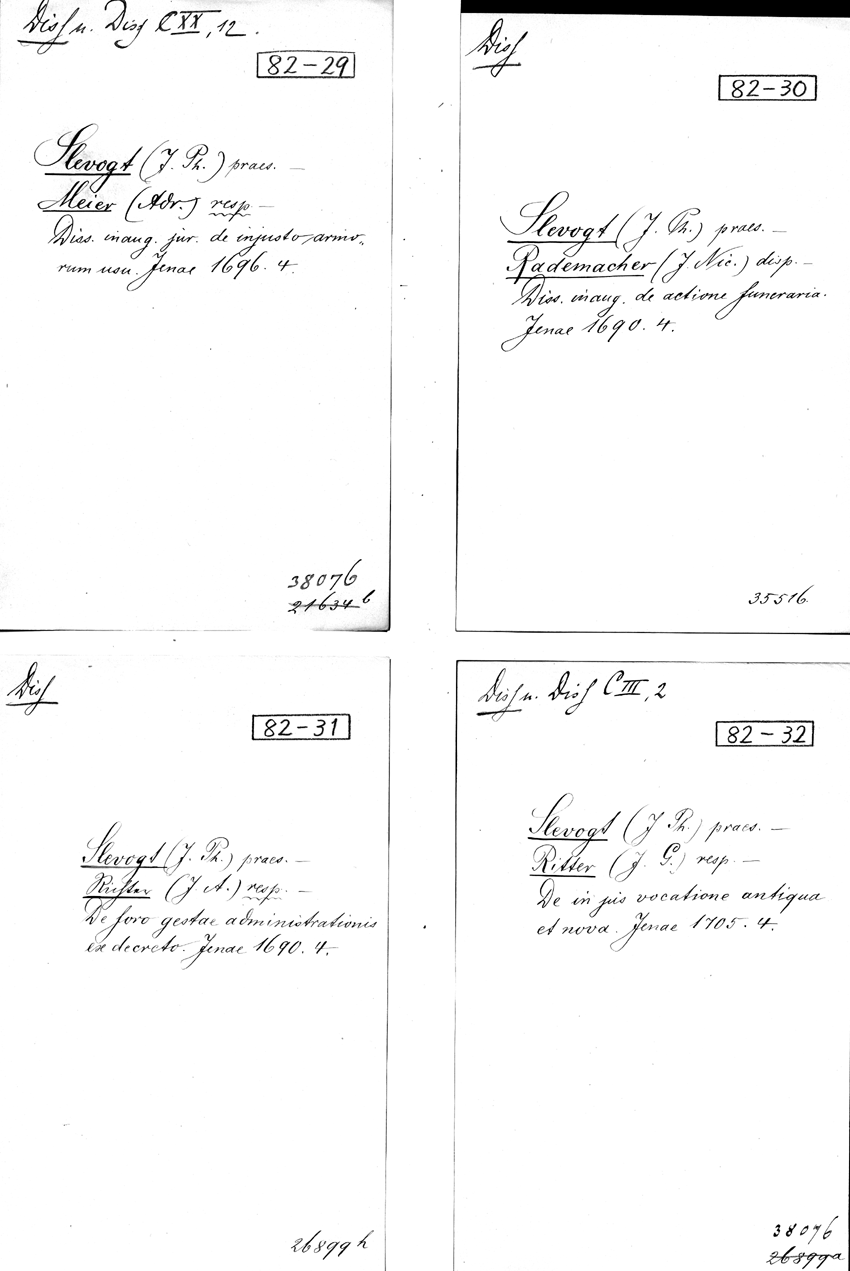 Diss u. Diss CXX, 12.
82-29
Slevogt (J. Ph.) praes. —
Meier (Adr.) resp. —
Diss. inaug. jur. de injusto armo-
rum usu. Jenae 1696. 4.
38076
21634 b
Diss
82-30
Slevogt (J. Ph.) praes. —
Rademacher (J Nic.) disp. —
Diss. inaug. de actione funeraria.
Jenae 1690. 4.
35516
Diss
82-31
Slevogt (J. Ph.) praes. —
Richter (J A.) resp. —
De foro gestae administrationis
ex decreto. Jenae 1690. 4.
26899 h
Diss u. Diss C III, 2
82-32
Slevogt (J Ph.) praes. —
Ritter (J. G.) resp. —
De in jus vocatione antiqua
et nova. Jenae 1705. 4.
38076
26899a